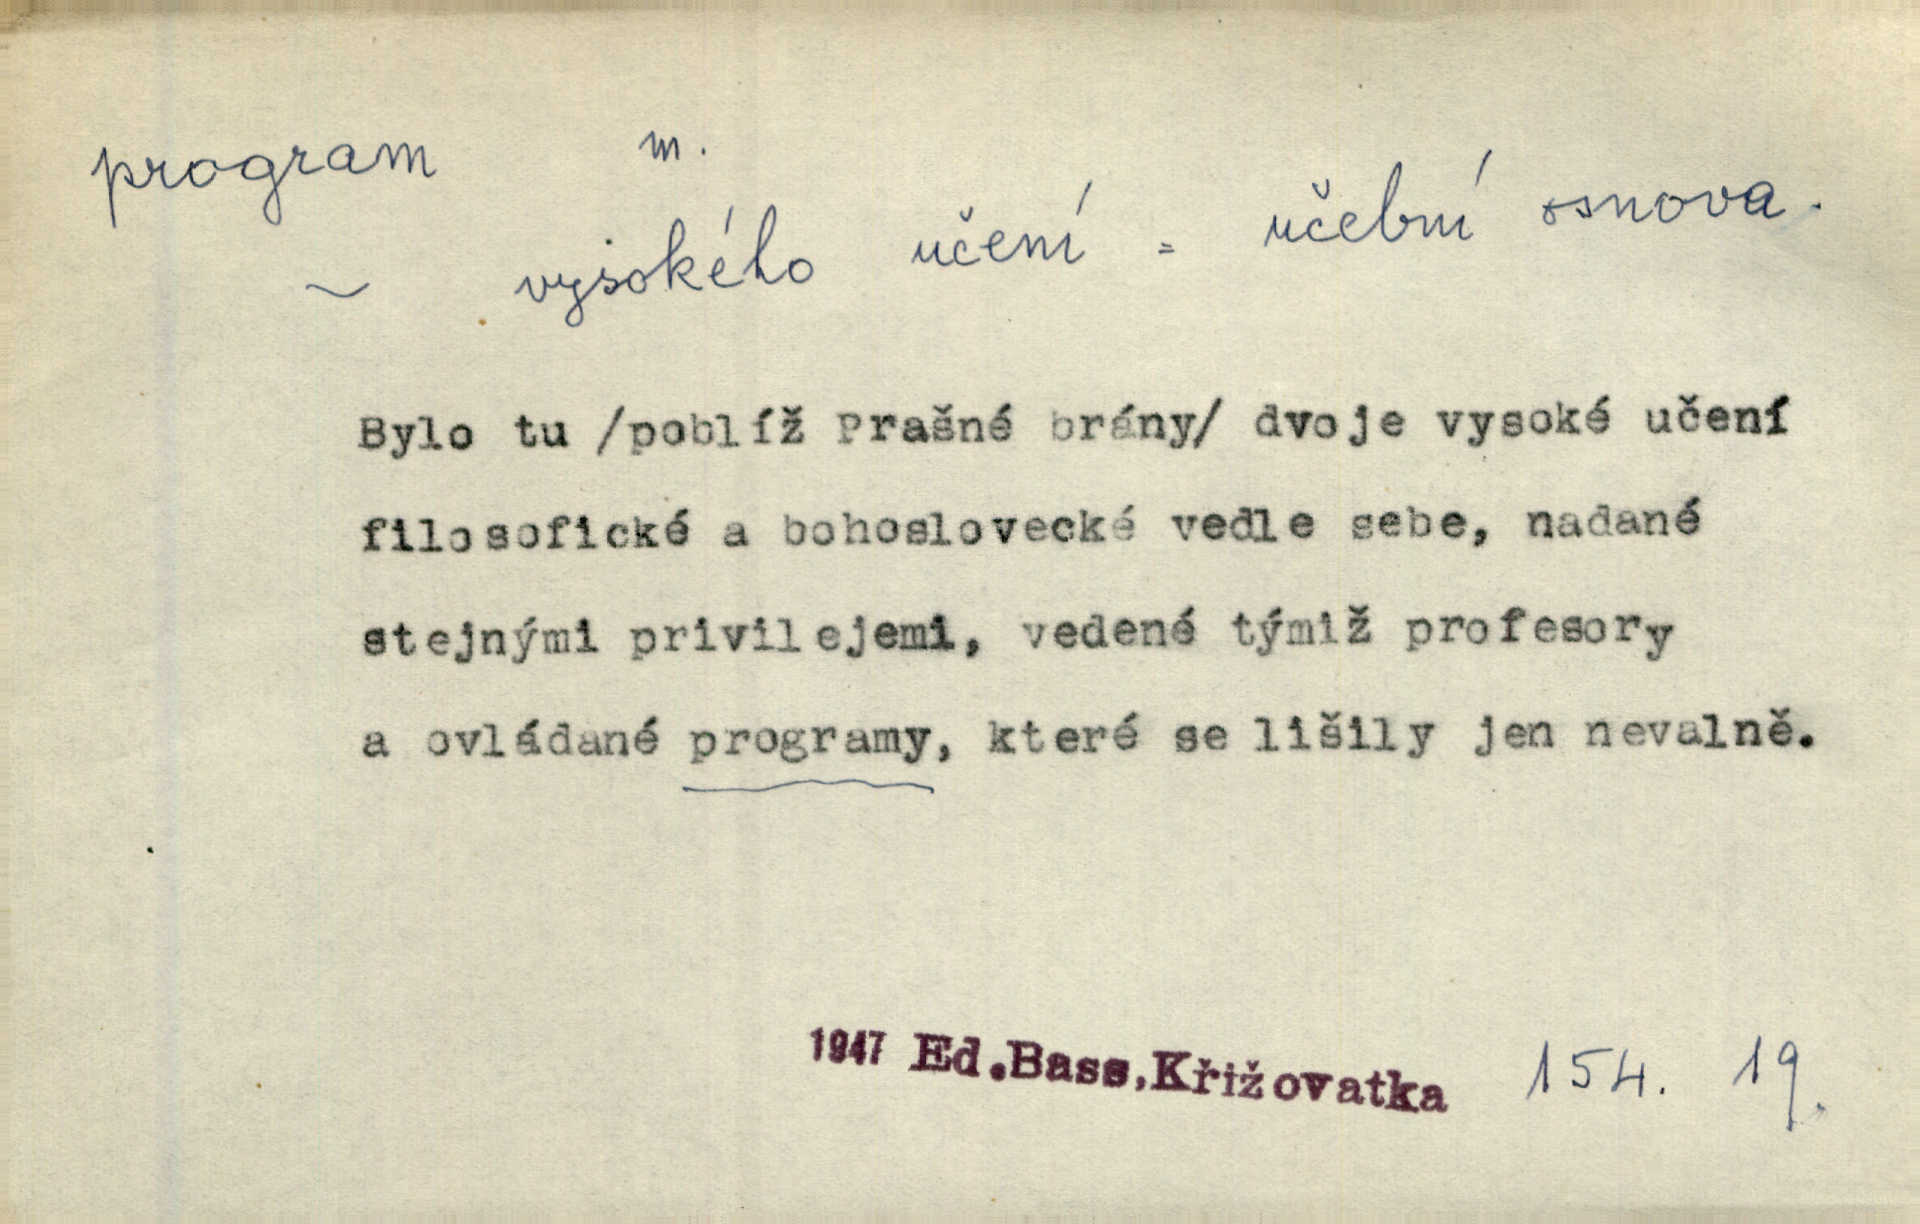 program m.
~ vysokého učení = učební osnova.
Bylo tu /poblíž Prašné brány/ dvoje vysoké učení
filosofické a bohoslovecké vedle sebe, nadané
stejnými privilejemi, vedené týmiž profesory
a ovládané programy, které se lišily jen nevalně.
1947 Ed.Bass,Křižovatka 154. 19.